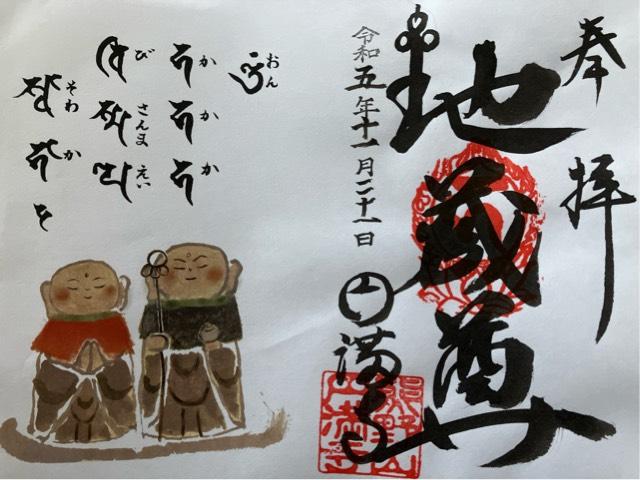 奉拝
地蔵尊
令和五年十一月二十一日
円満寺
熊野山
円満寺
おん
かかか
びさんまえい
そわか